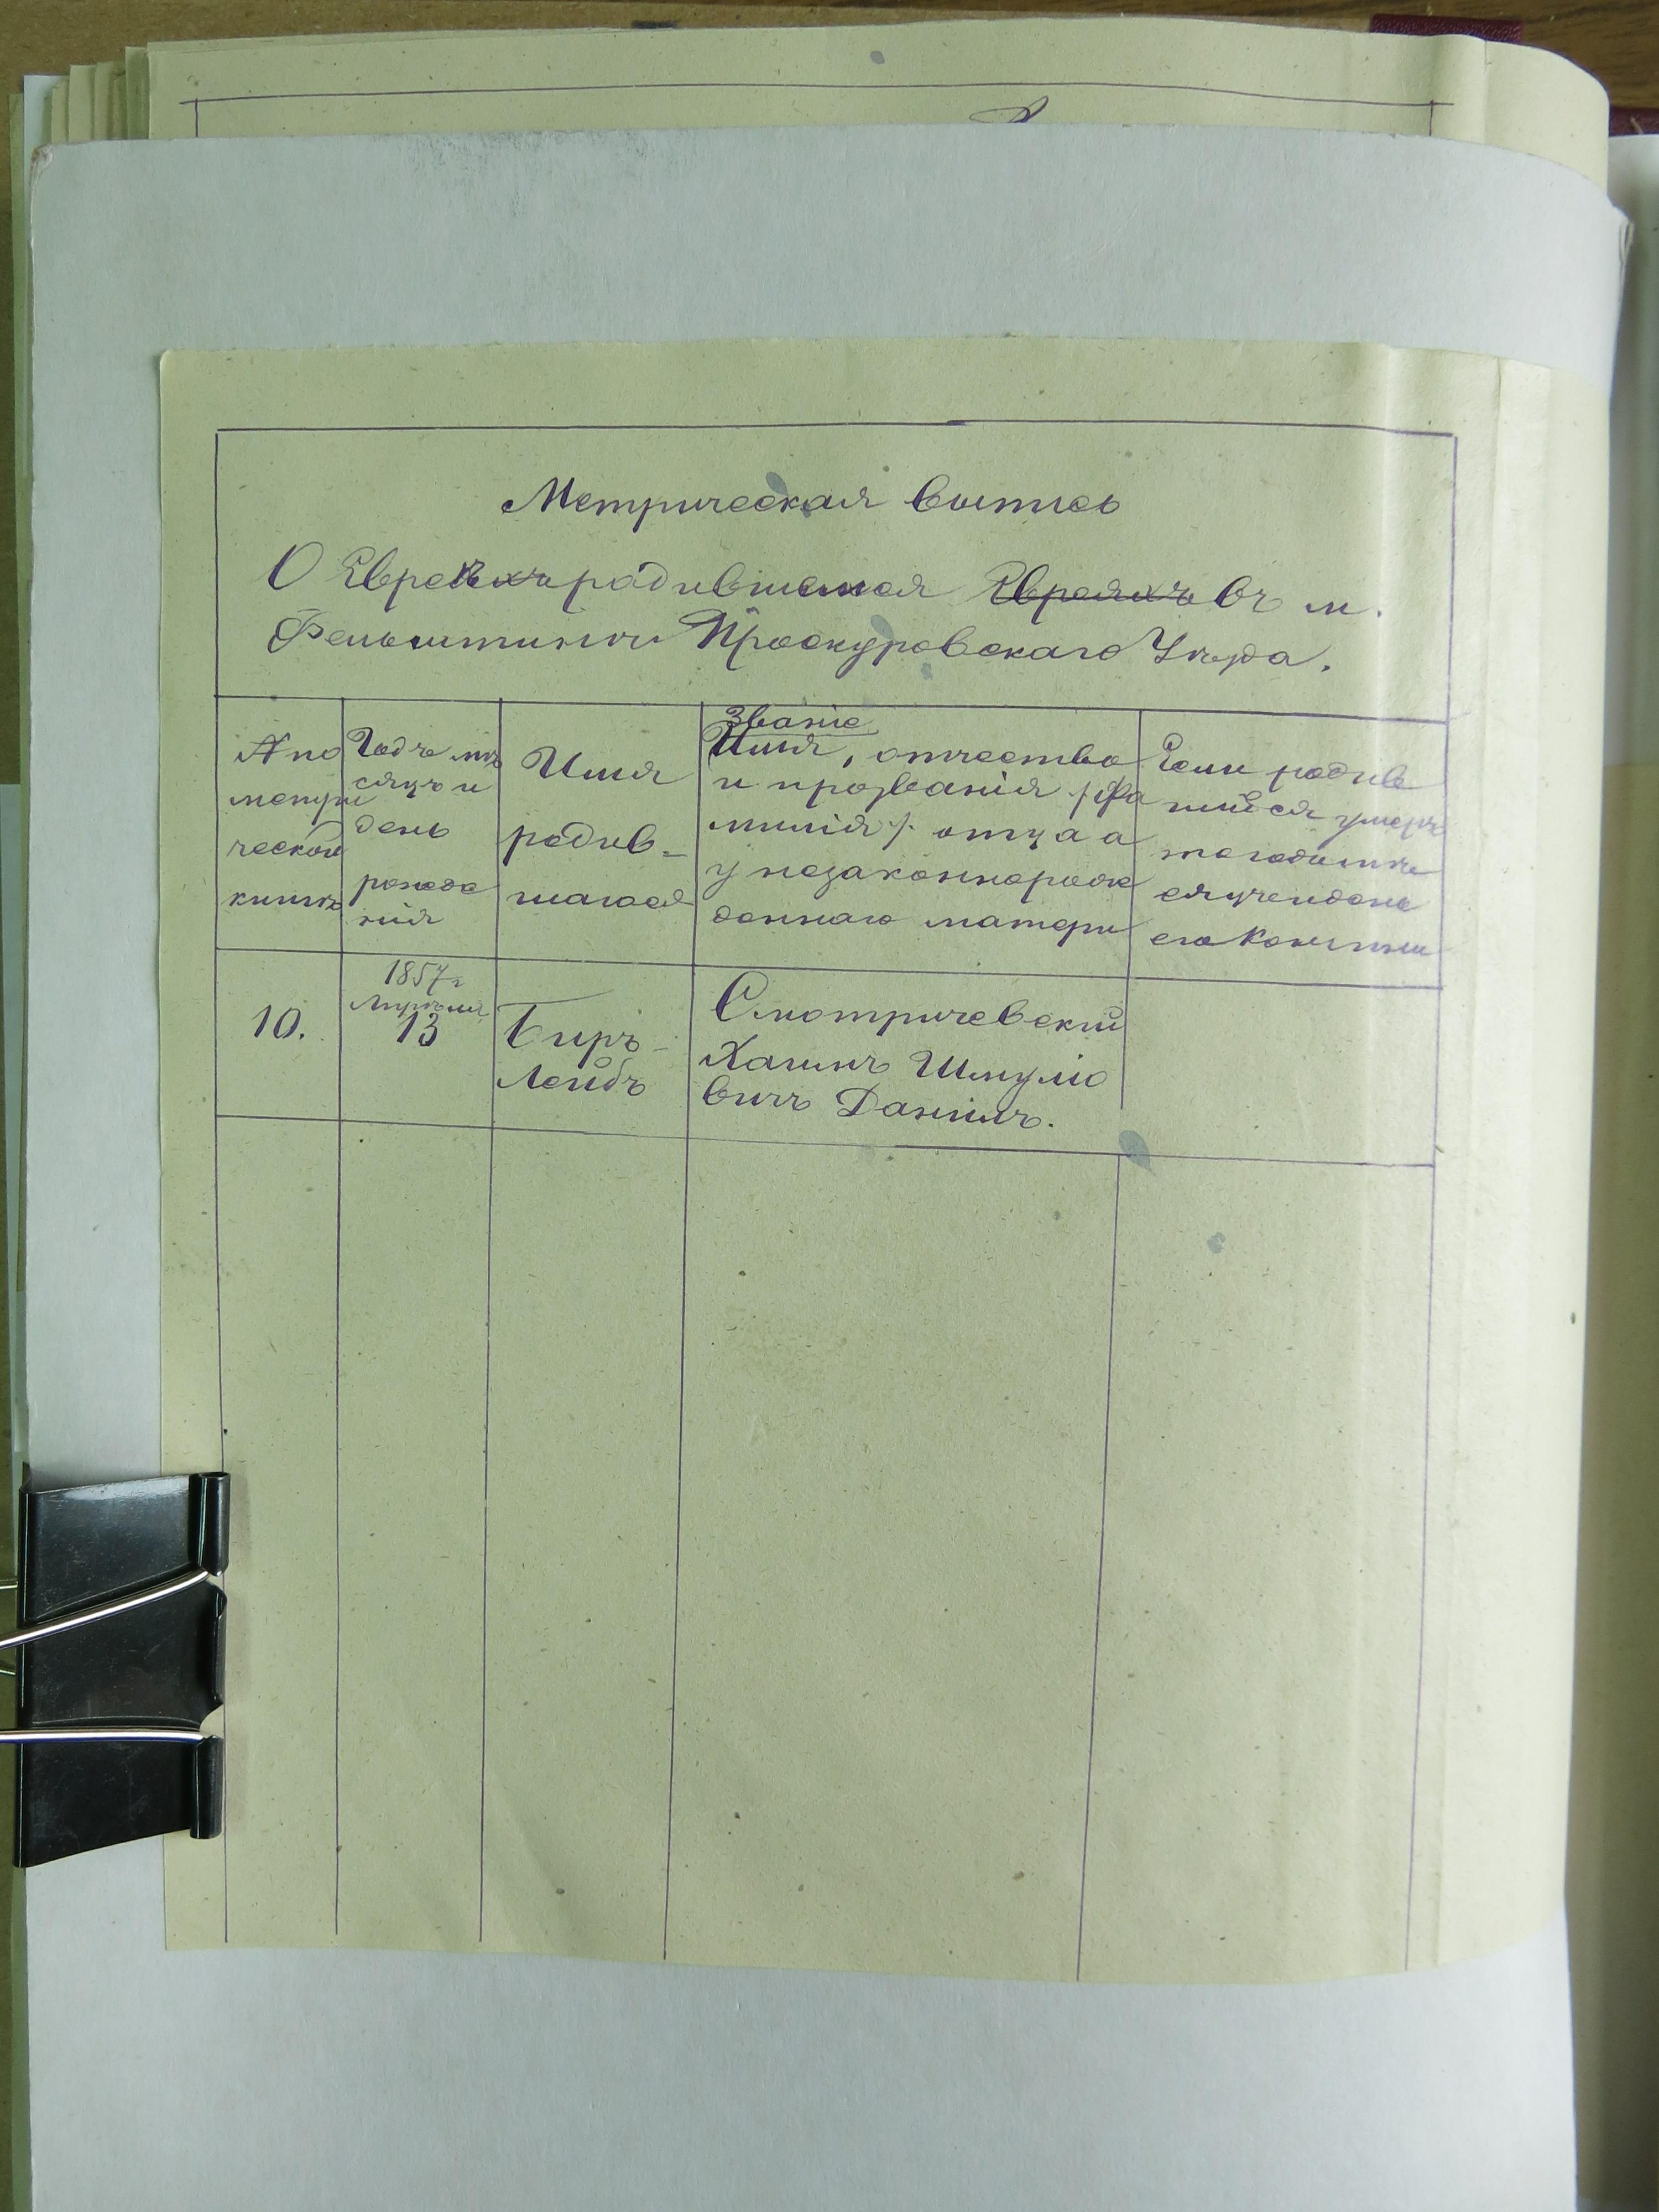 Метрическая выпись
О Евреѣхъ родившемся Евреяхъ въ м.
Фельштинѣ Проскуровскаго Уѣзда.
№ по
метри
ческой
книгѣ
Годъ мѣ
сяцъ и
день
рожде
нія
Имя
родив-
шагося
Званіе
Имя, отчество
и прозванія /фа
милія/. отца а
у незаконнорож
деннаго матери
Если родив
шійся умеръ
то годъ мѣ
сяцъ и день
его кончины
10.
1857г
13
Биръ-
Лейбъ
Смотричевскій
Хаимъ Шмулю
вичъ Даніилъ.